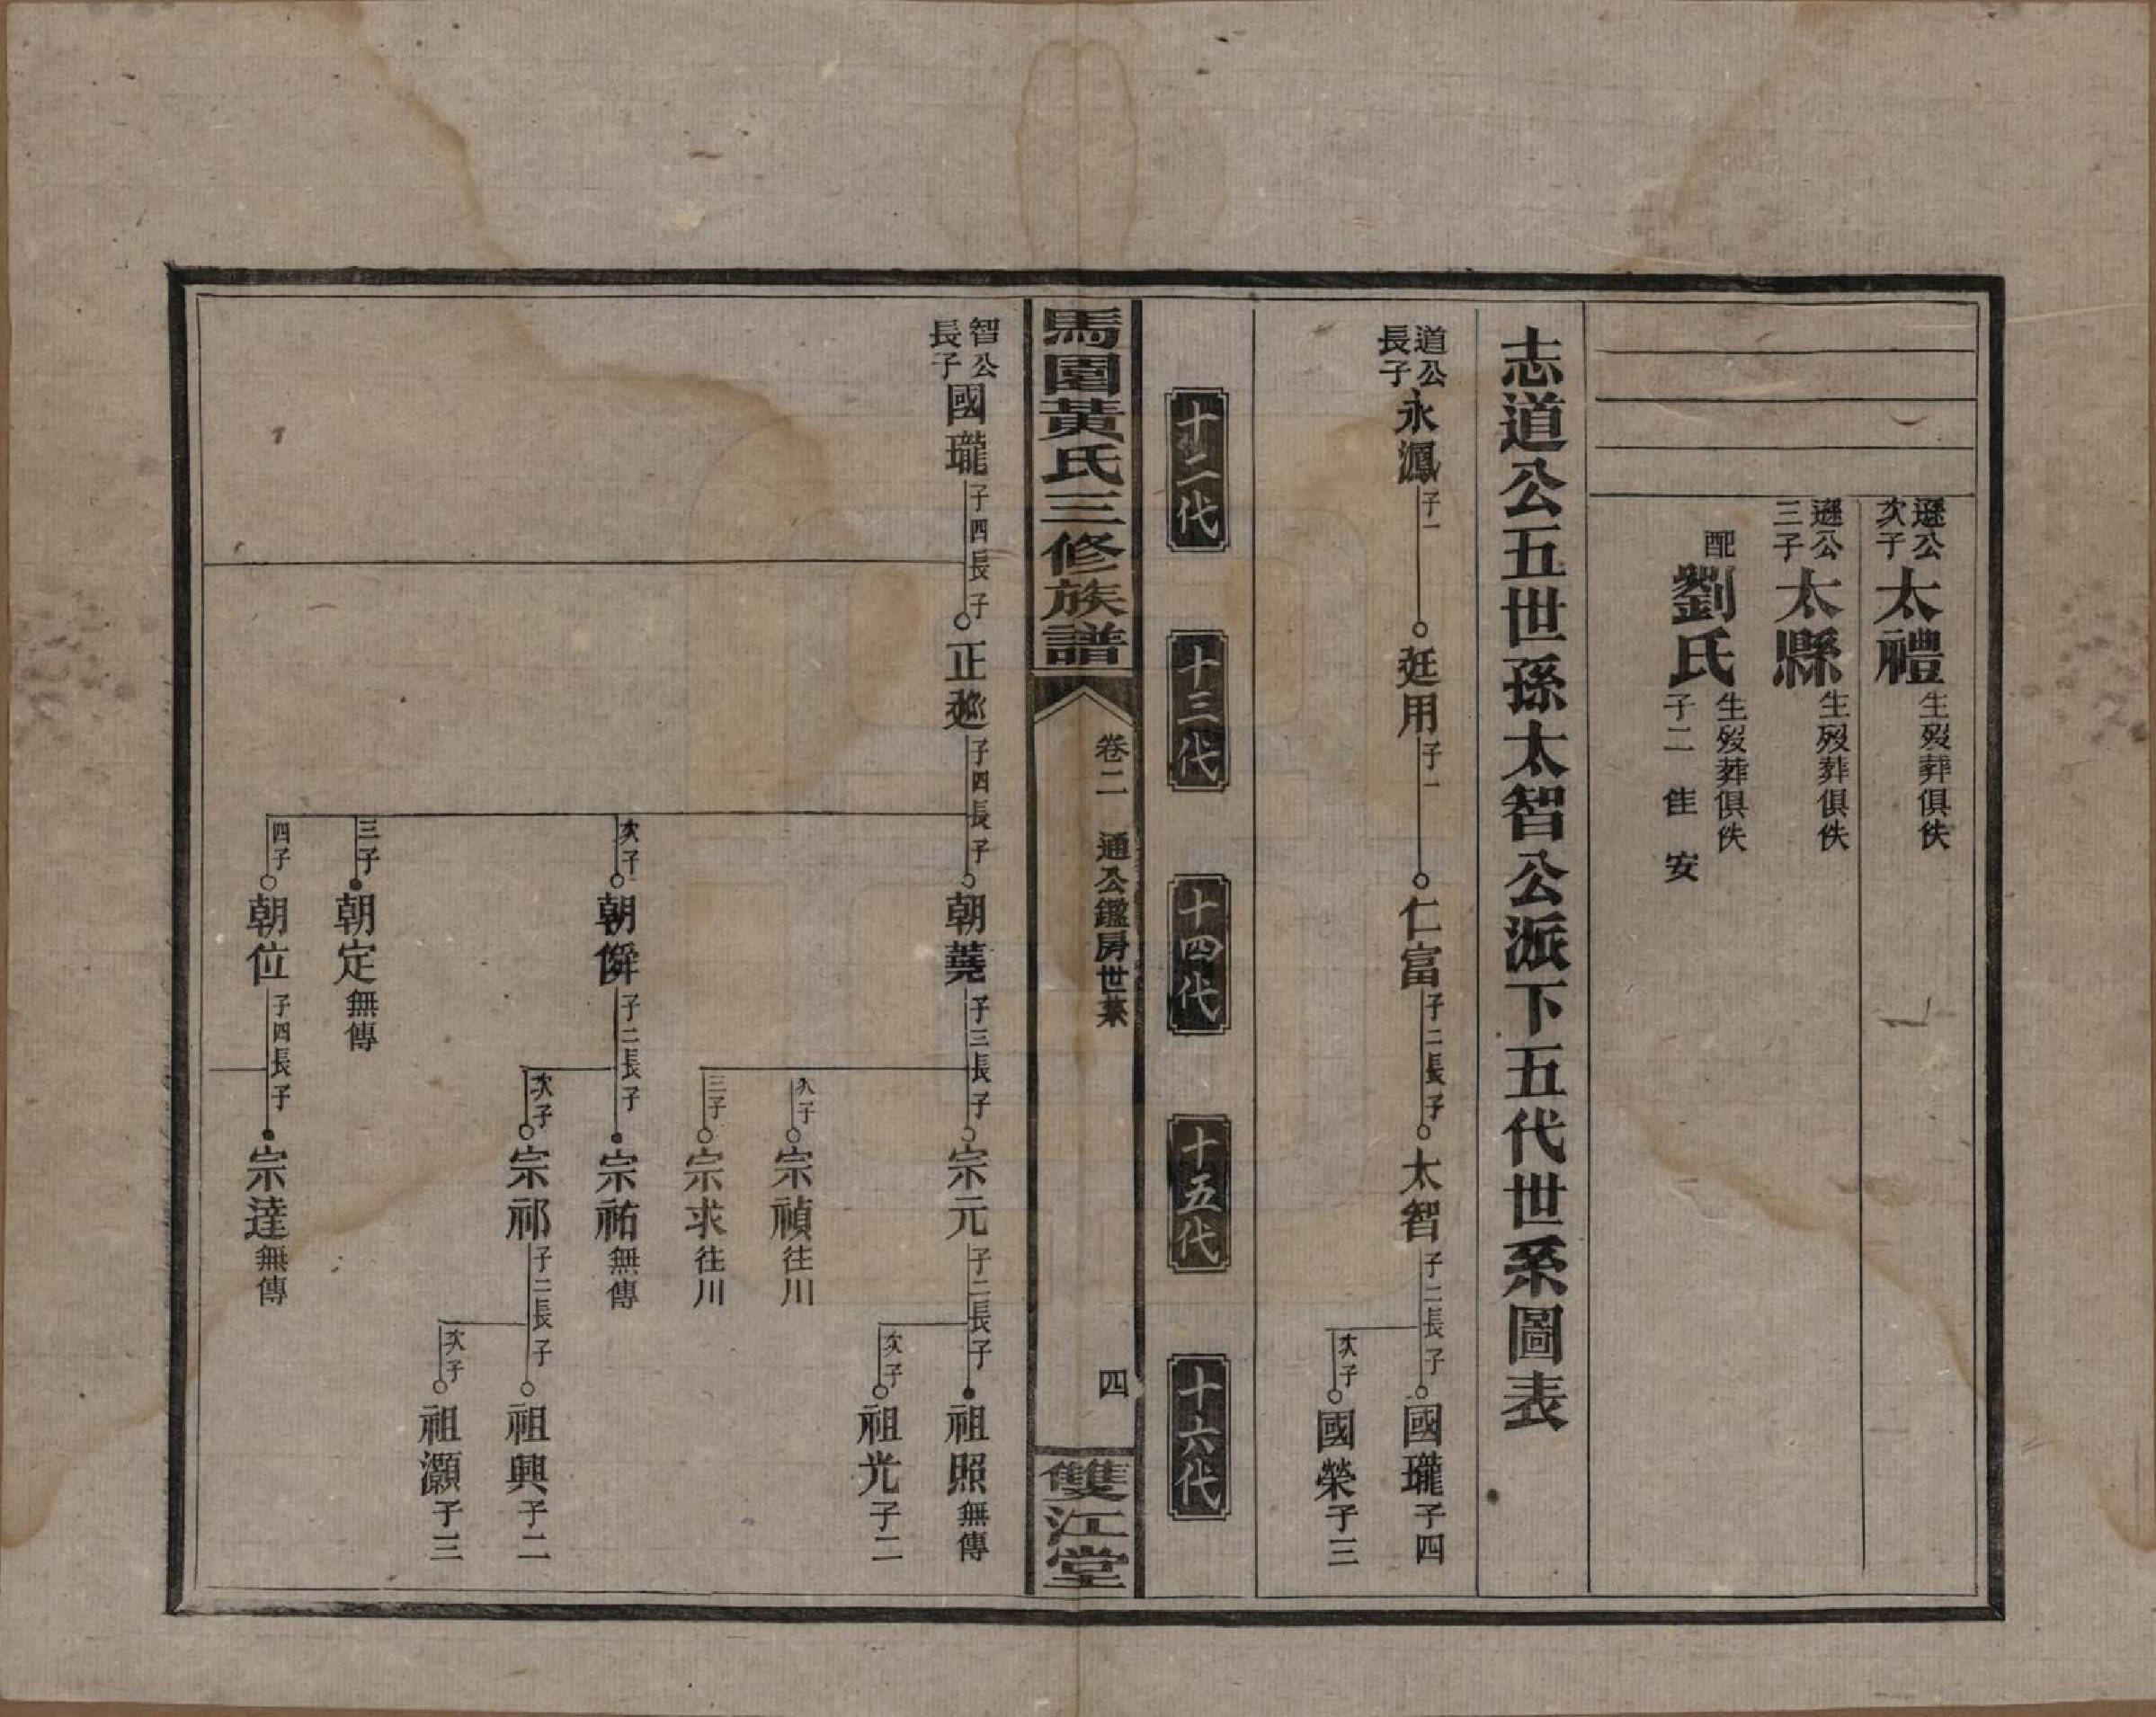 遜公次子 太禮 生殁葬俱佚
遜公三子 太縣 生殁葬俱佚
配 劉氏 生殁葬俱佚
子二 隹 安
志道公五世孫太智公派下五代世系圖表
道公長子 永鳳 子一 廷用 子一 仁富 子二長子 太智 子二長子 國瓏 子四
次子 國榮 子三
十二代 十三代 十四代 十五代 十六代
馬園黃氏三修族譜
卷二 通公鑑房世系 四
雙江堂
智公長子 國瓏 子四長子 正 子四長子 朝蕘 子三長子 宗元 子二長子 祖照 無傳
次子 祖光 子二
次子 宗禎 往川
三子 宗求 往川
次子 朝僢 子二長子 宗祐 無傳
次子 宗祁 子二長子 祖興 子二
次子 祖灝 子三
三子 朝定 無傳
四子 朝位 子四長子 宗達 無傳